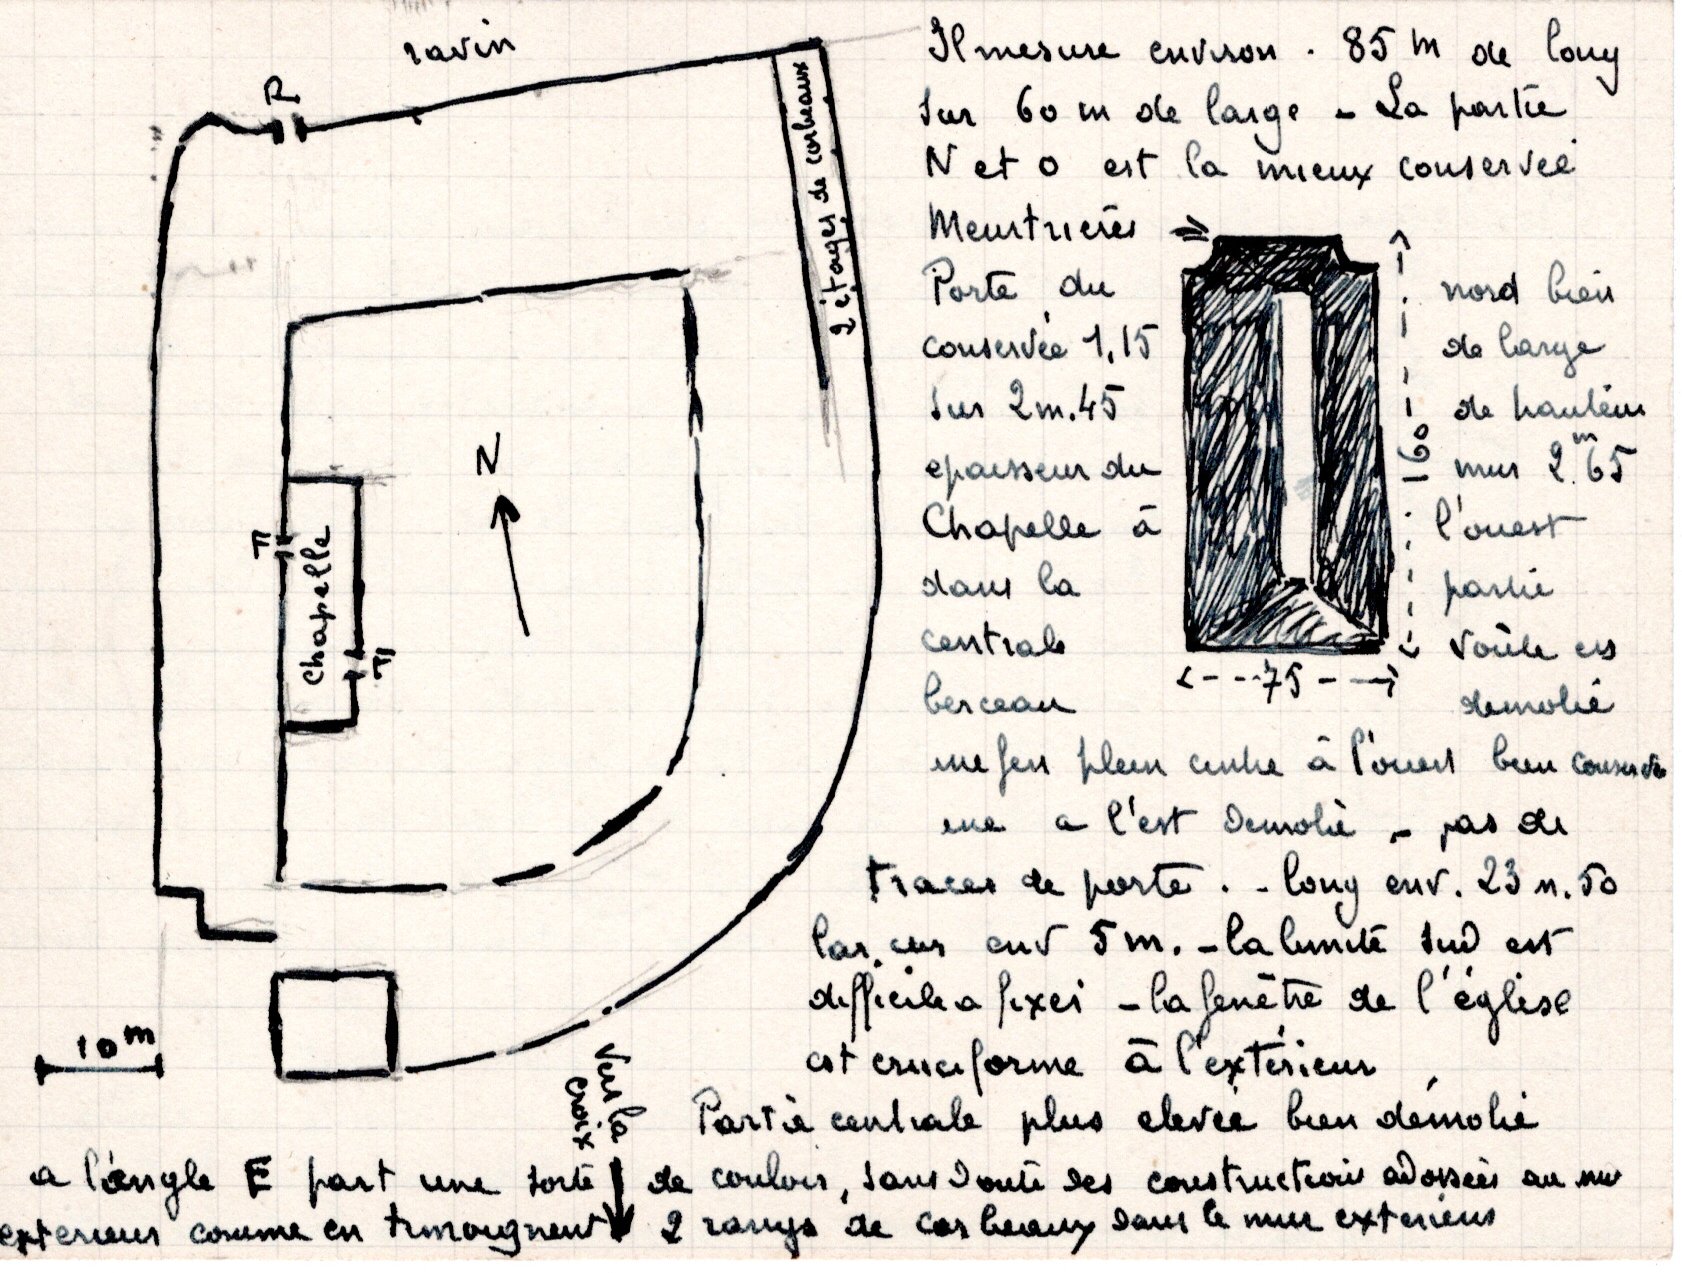 ravin
P.
2 étages de corbeaux
N
F
Chapelle
F
10 m
Vers la
croix
Il mesure environ . 85 m de long
sur 60 m de large - La partie
N et O est la mieux conservée
Meurtrières
Porte du nord bien
conservée 1,15 de large
sur 2m.45 de hauteur
epaisseur du mur 2.m65
Chapelle à l'ouest
dans la partie
centrale voûte en
berceau demolie
160
75
une fen plein cintre à l'ouest bien conservée
une a l'est demolie - pas de
traces de porte . - long env. 23 m.50
largeur env 5 m. - la limite sud est
difficile a fixer - la fenêtre de l'église
est cruciforme à l'extérieur
Partie centrale plus elevée bien démolie
a l'angle E part une sorte de couloir, sans doute des constructions adossées au mur
exterieur comme en temoignent 2 rangs de corbeaux dans le mur exterieur